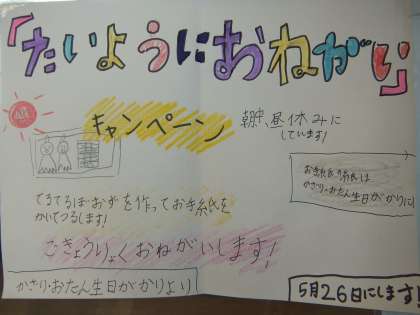 「たいようにおねがい」
キャンペーン
朝、昼休みに
しています!
お手紙は
かざり・おたん生日がかりに
てるてるぼおずを作ってお手紙を
かいてつるします!
ごきょうりょくおねがいします!
かざり・おたん生日がかりより
5月26日にします!